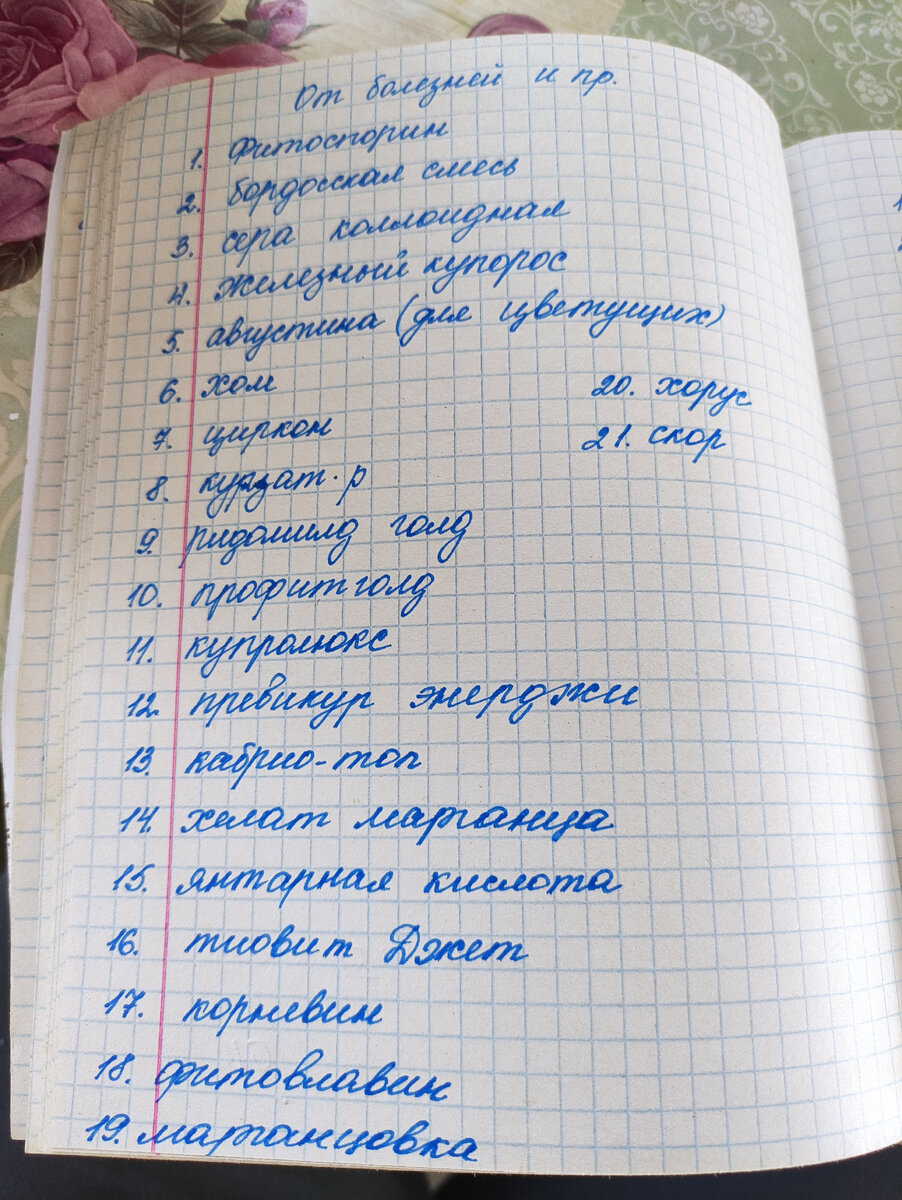 От болезней и пр.
1. Фитоспорин
2. бордосская смесь
3. сера коллоидная
4. железный купорос
5. августина (для цветущих)
6. хом
7. циркон
8. курзат. р
9. ридомилд голд
10. профитголд
11. купролюкс
12. превикур энерджи
13. кабрио-топ
14. хелат марганца
15. янтарная кислота
16. тиовит Джет
17. корневин
18. фитовлавин
19. марганцовка
20. хорус
21. скор